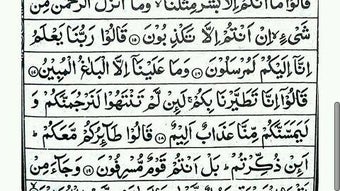 قَالُوْا مَاۤ اَنْتُمْ اِلَّا بَشَرٌ مِّثْلُنَا ۙ وَمَاۤ اَنْزَلَ الرَّحْمٰنُ مِنْ
شَیْءٍ ۙ اِنْ اَنْتُمْ اِلَّا تَكْذِبُوْنَ ۝۱۵ قَالُوْا رَبُّنَا یَعْلَمُ
اِنَّاۤ اِلَیْكُمْ لَمُرْسَلُوْنَ ۝۱۶ وَمَا عَلَیْنَاۤ اِلَّا الْبَلٰغُ الْمُبِیْنُ ۝۱۷
قَالُوْۤا اِنَّا تَطَیَّرْنَا بِكُمْ ۚ لَىِٕنْ لَّمْ تَنْتَهُوْا لَنَرْجُمَنَّكُمْ وَ
لَیَمَسَّنَّكُمْ مِّنَّا عَذَابٌ اَلِیْمٌ ۝۱۸ قَالُوْا طَآىِٕرُكُمْ مَّعَكُمْ ؕ
اَىِٕنْ ذُكِّرْتُمْ ؕ بَلْ اَنْتُمْ قَوْمٌ مُّسْرِفُوْنَ ۝۱۹ وَجَآءَ مِنْ